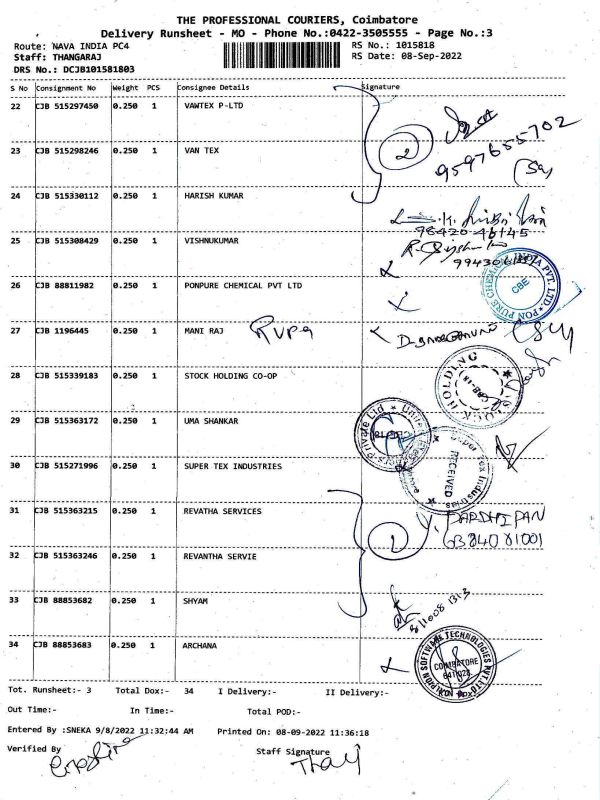 THE PROFESSIONAL COURIERS, Coimbatore
Delivery Runsheet - MO - Phone No.:0422-3505555 - Page No.:3
Route: NAVA INDIA PC4 RS No.: 1015818
Staff: THANGARAJ RS Date: 08-Sep-2022
DRS No.: DCJB101581803
S No Consignment No Weight PCS Consignee Details Signature
22 CJB 515297450 0.250 1 VAWTEX P-LTD
9597655702
23 CJB 515298246 0.250 1 VAN TEX
2
24 CJB 515330112 0.250 1 HARISH KUMAR
98420 46145
25 CJB 515308429 0.250 1 VISHNUKUMAR
26 CJB 88811982 0.250 1 PONPURE CHEMICAL PVT LTD
CBE
27 CJB 1196445 0.250 1 MANI RAJ Rupa
28 CJB 515339183 0.250 1 STOCK HOLDING CO-OP
STOCK HOLDING
29 CJB 515363172 0.250 1 UMA SHANKAR
30 CJB 515271996 0.250 1 SUPER TEX INDUSTRIES
Super Tex Industries
RECEIVED
31 CJB 515363215 0.250 1 REVATHA SERVICES
PARDHIPAN
32 CJB 515363246 0.250 1 REVANTHA SERVIE
33 CJB 88853682 0.250 1 SHYAM
34 CJB 88853683 0.250 1 ARCHANA
SOFTWARE TECHNOLOGIES
COIMBATORE
Tot. Runsheet:- 3 Total Dox:- 34 I Delivery:- II Delivery:-
Out Time:- In Time:- Total POD:-
Entered By :SNEKA 9/8/2022 11:32:44 AM Printed On: 08-09-2022 11:36:18
Verified By Staff Signature